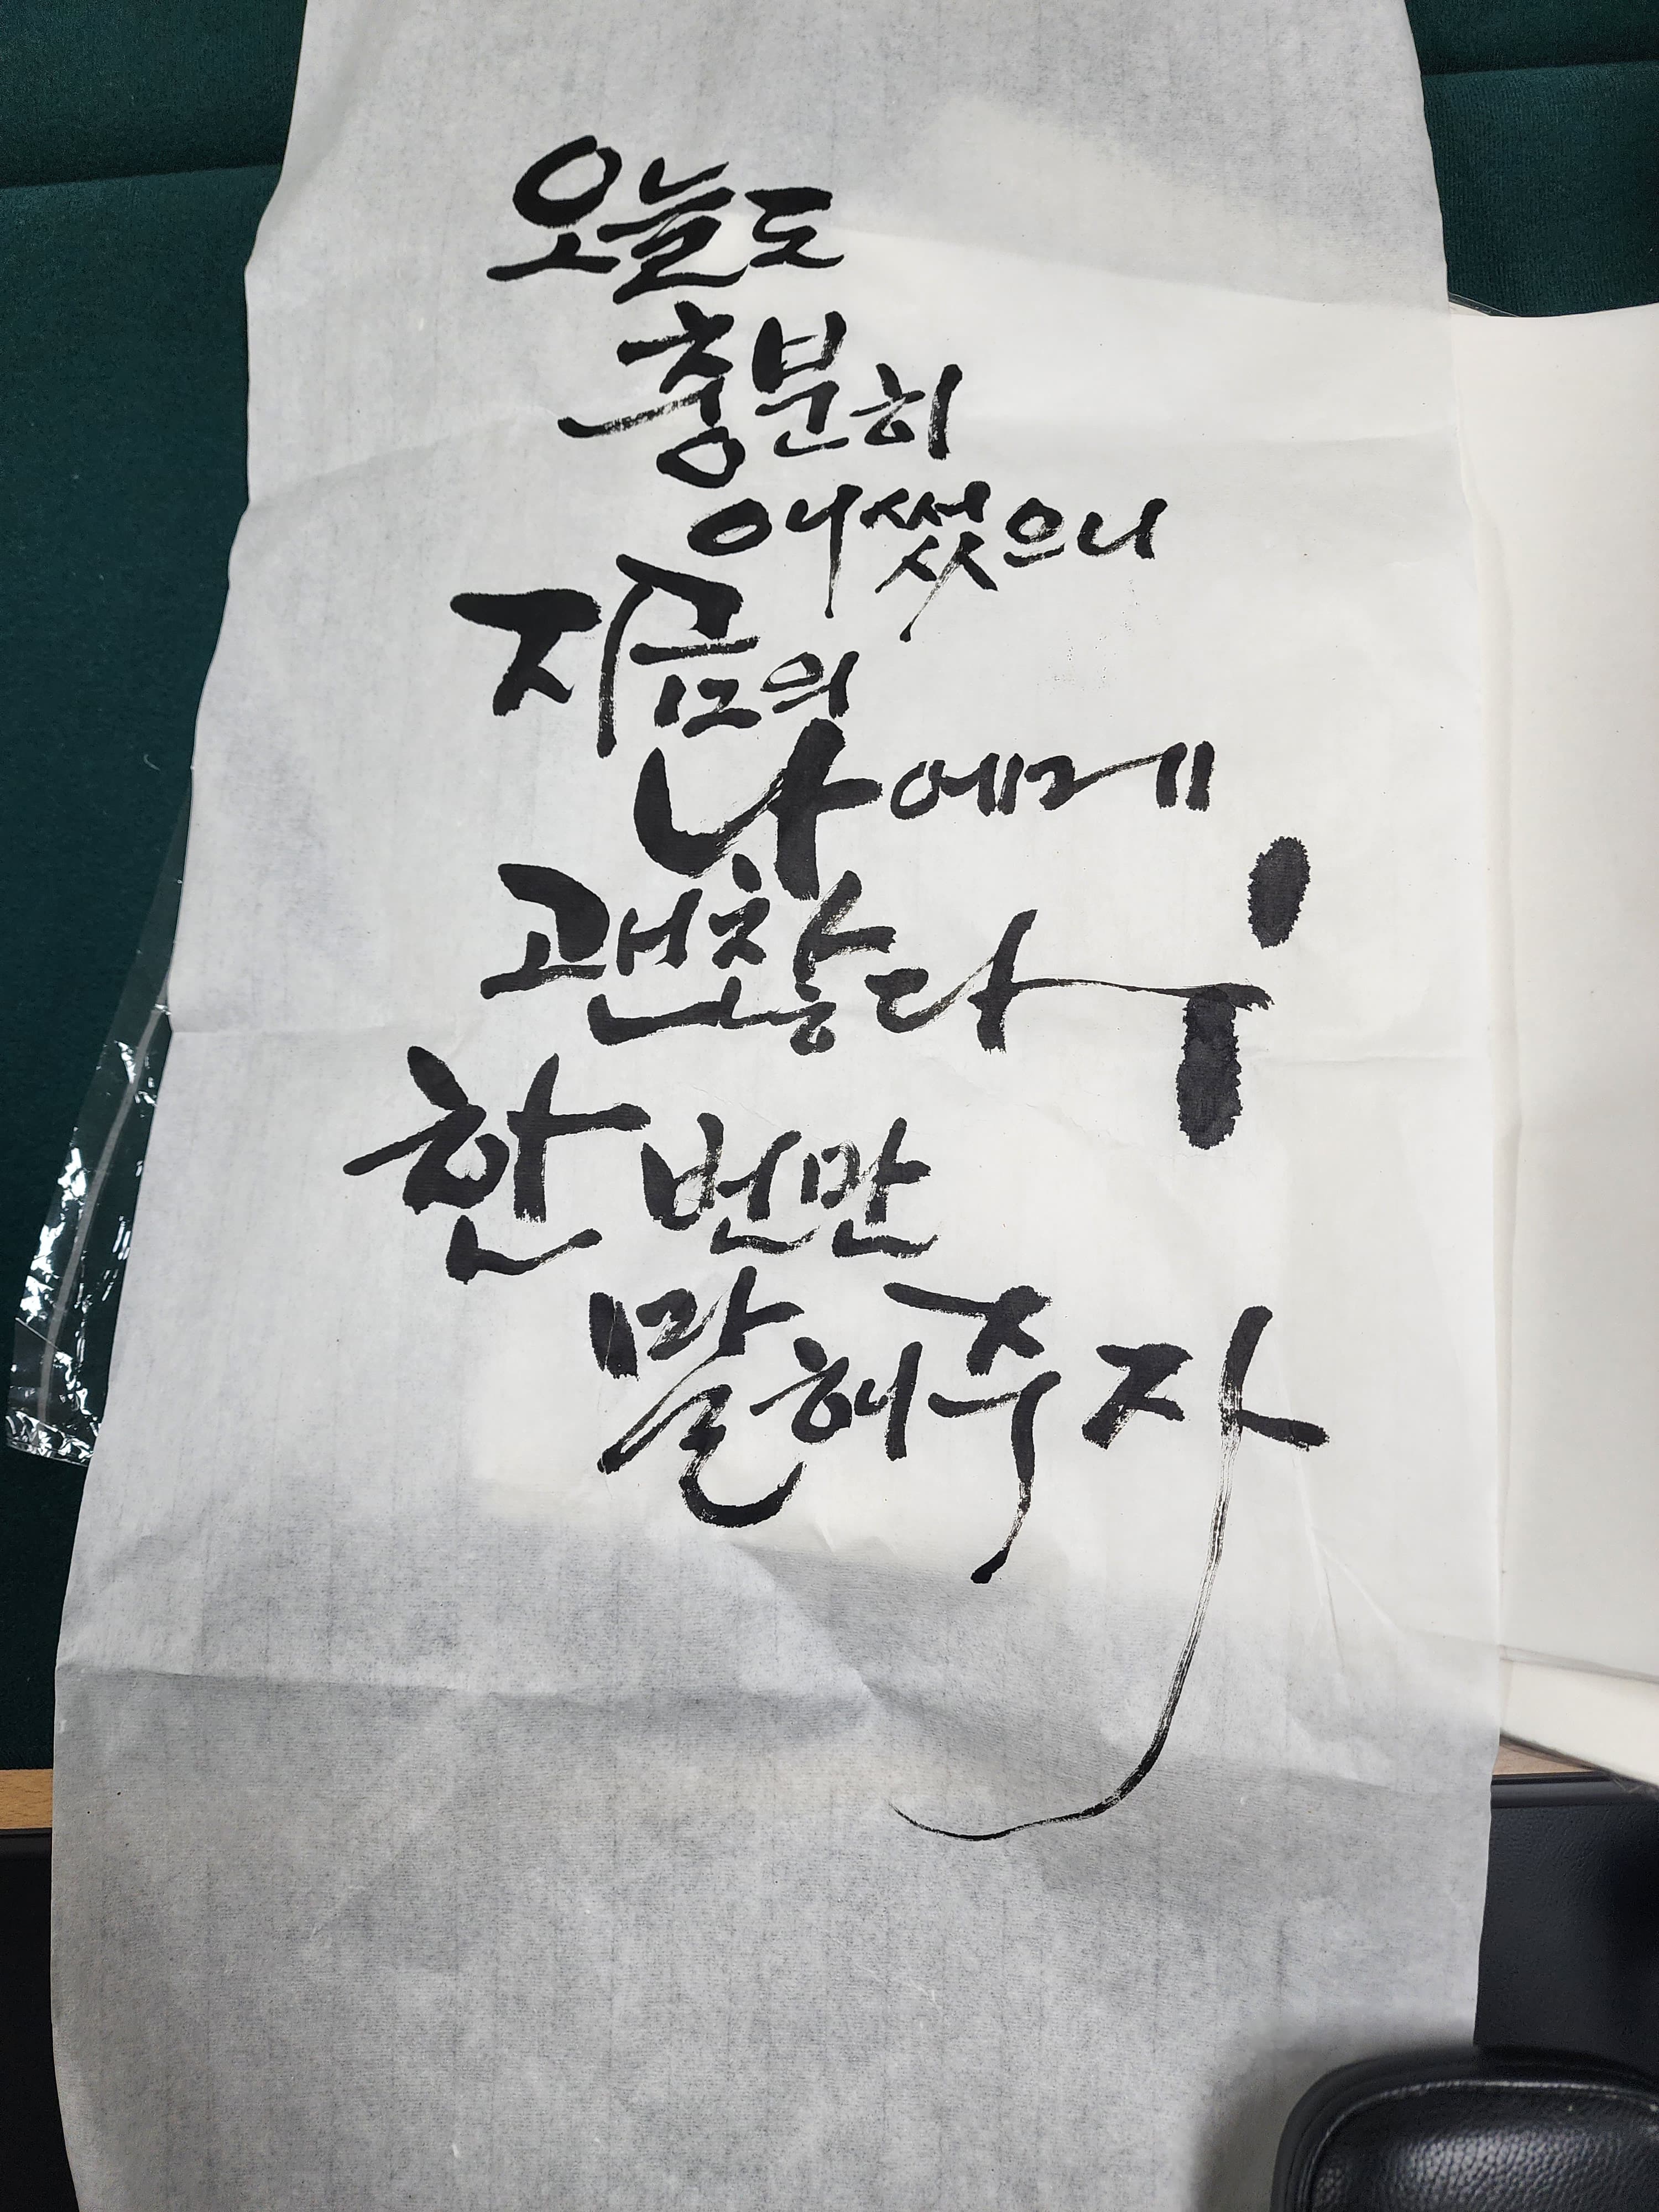 오늘도
충분히
애썼으니
지금의
나에게
괜찮다
한 번만
말해주자